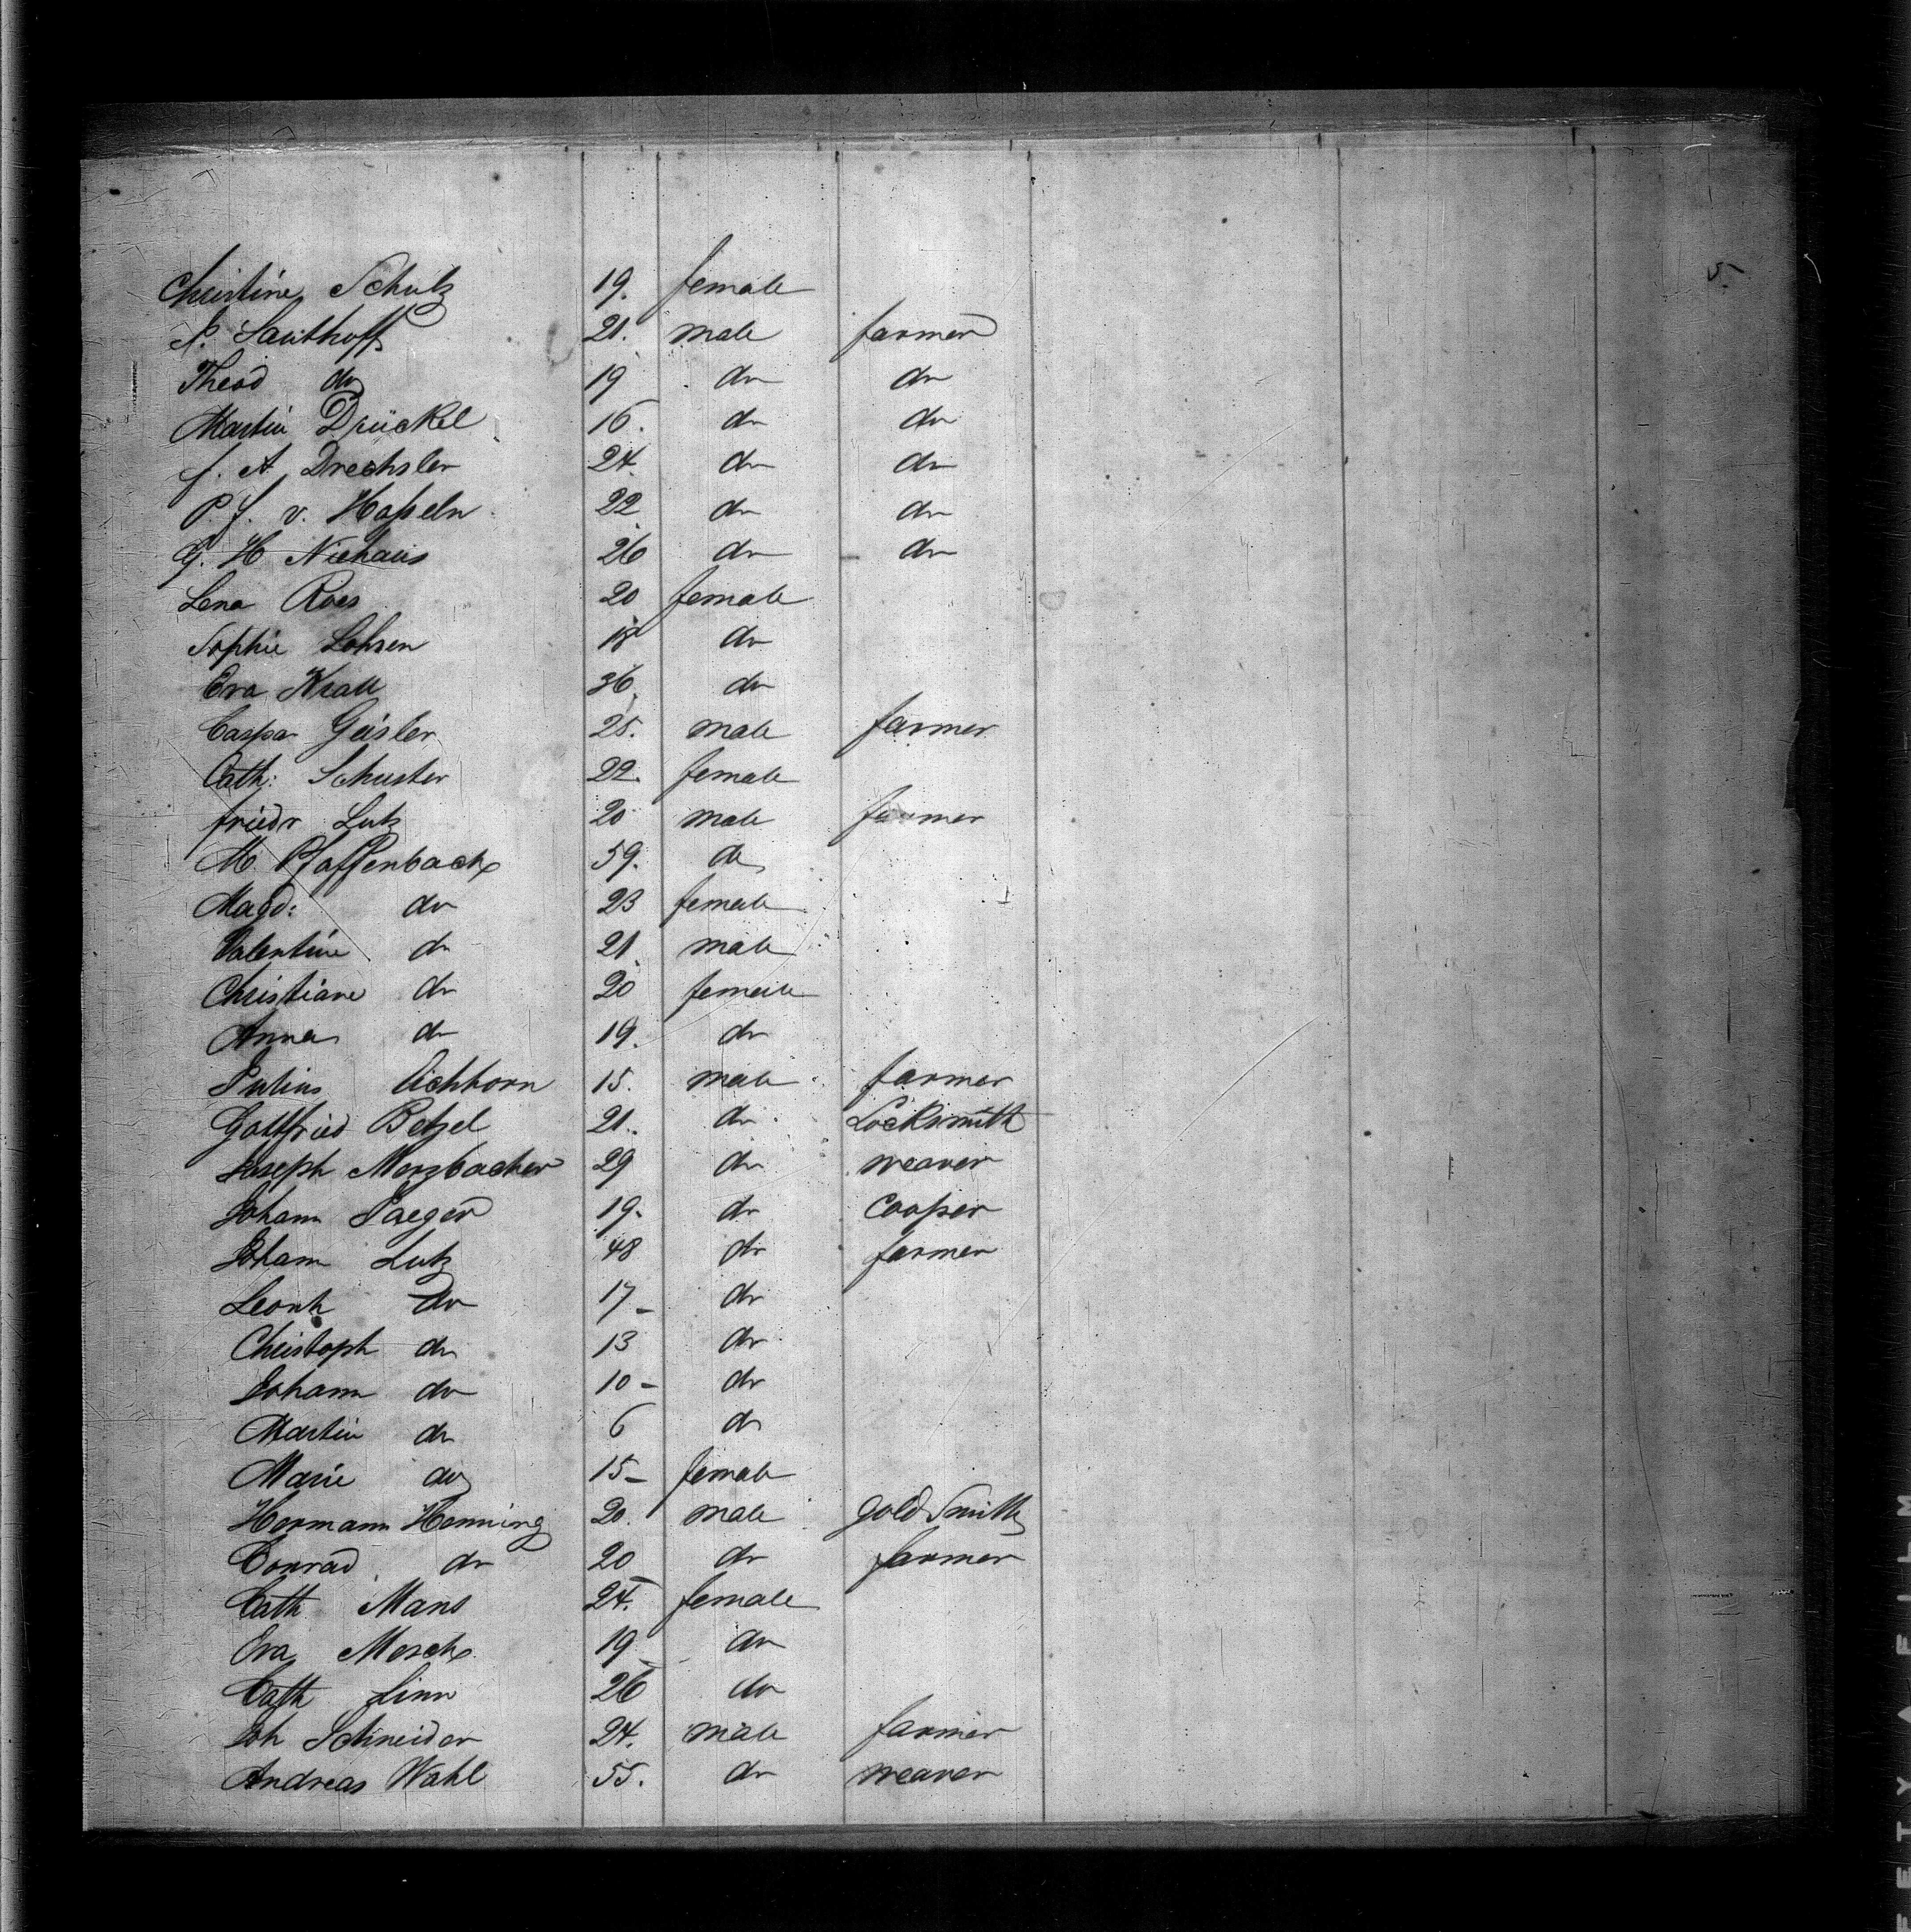 5
Christine Schulz 19. female
J. Sauthoff 21. male farmer
Theod do 19 do do
Martin Drückel 16. do do
J. A Drechsler 24. do do
P. J. v. Haßeln 22 do do
G. H Niehaus 26 do do
Lena Roes 20 female
Sophie Lohsen 18 do
Eva Krall 36 do
Caspar Geisler 25. male farmer
Cath: Schuster 22. female
friedr Lutz 20 male farmer
M. Pfaffenbach 59. do
Magd: do 23 female
Valentin do 21. male
Christiane do 20 female
Anna do 19. do
Julius Eichhorn 15. male farmer
Gottfried Betzel 21. do Locksmith
Joseph Merzbacher 29 do weaver
Johann Jaeger 19. do Cooper
Johann Lutz 48 do farmer
Leonh do 17 - do
Christoph do 13 do
Johann do 10 - do
Martin do 6 do
Marie do 15 - female
Hermann Henning 20. male gold Smith
Conrad do 20 do farmer
Cath Mans 24. female
Eva Mesch 19 do
Cath Linn 26 do
Joh Schneider 24. male farmer
Andreas Wahl 55. do weaver